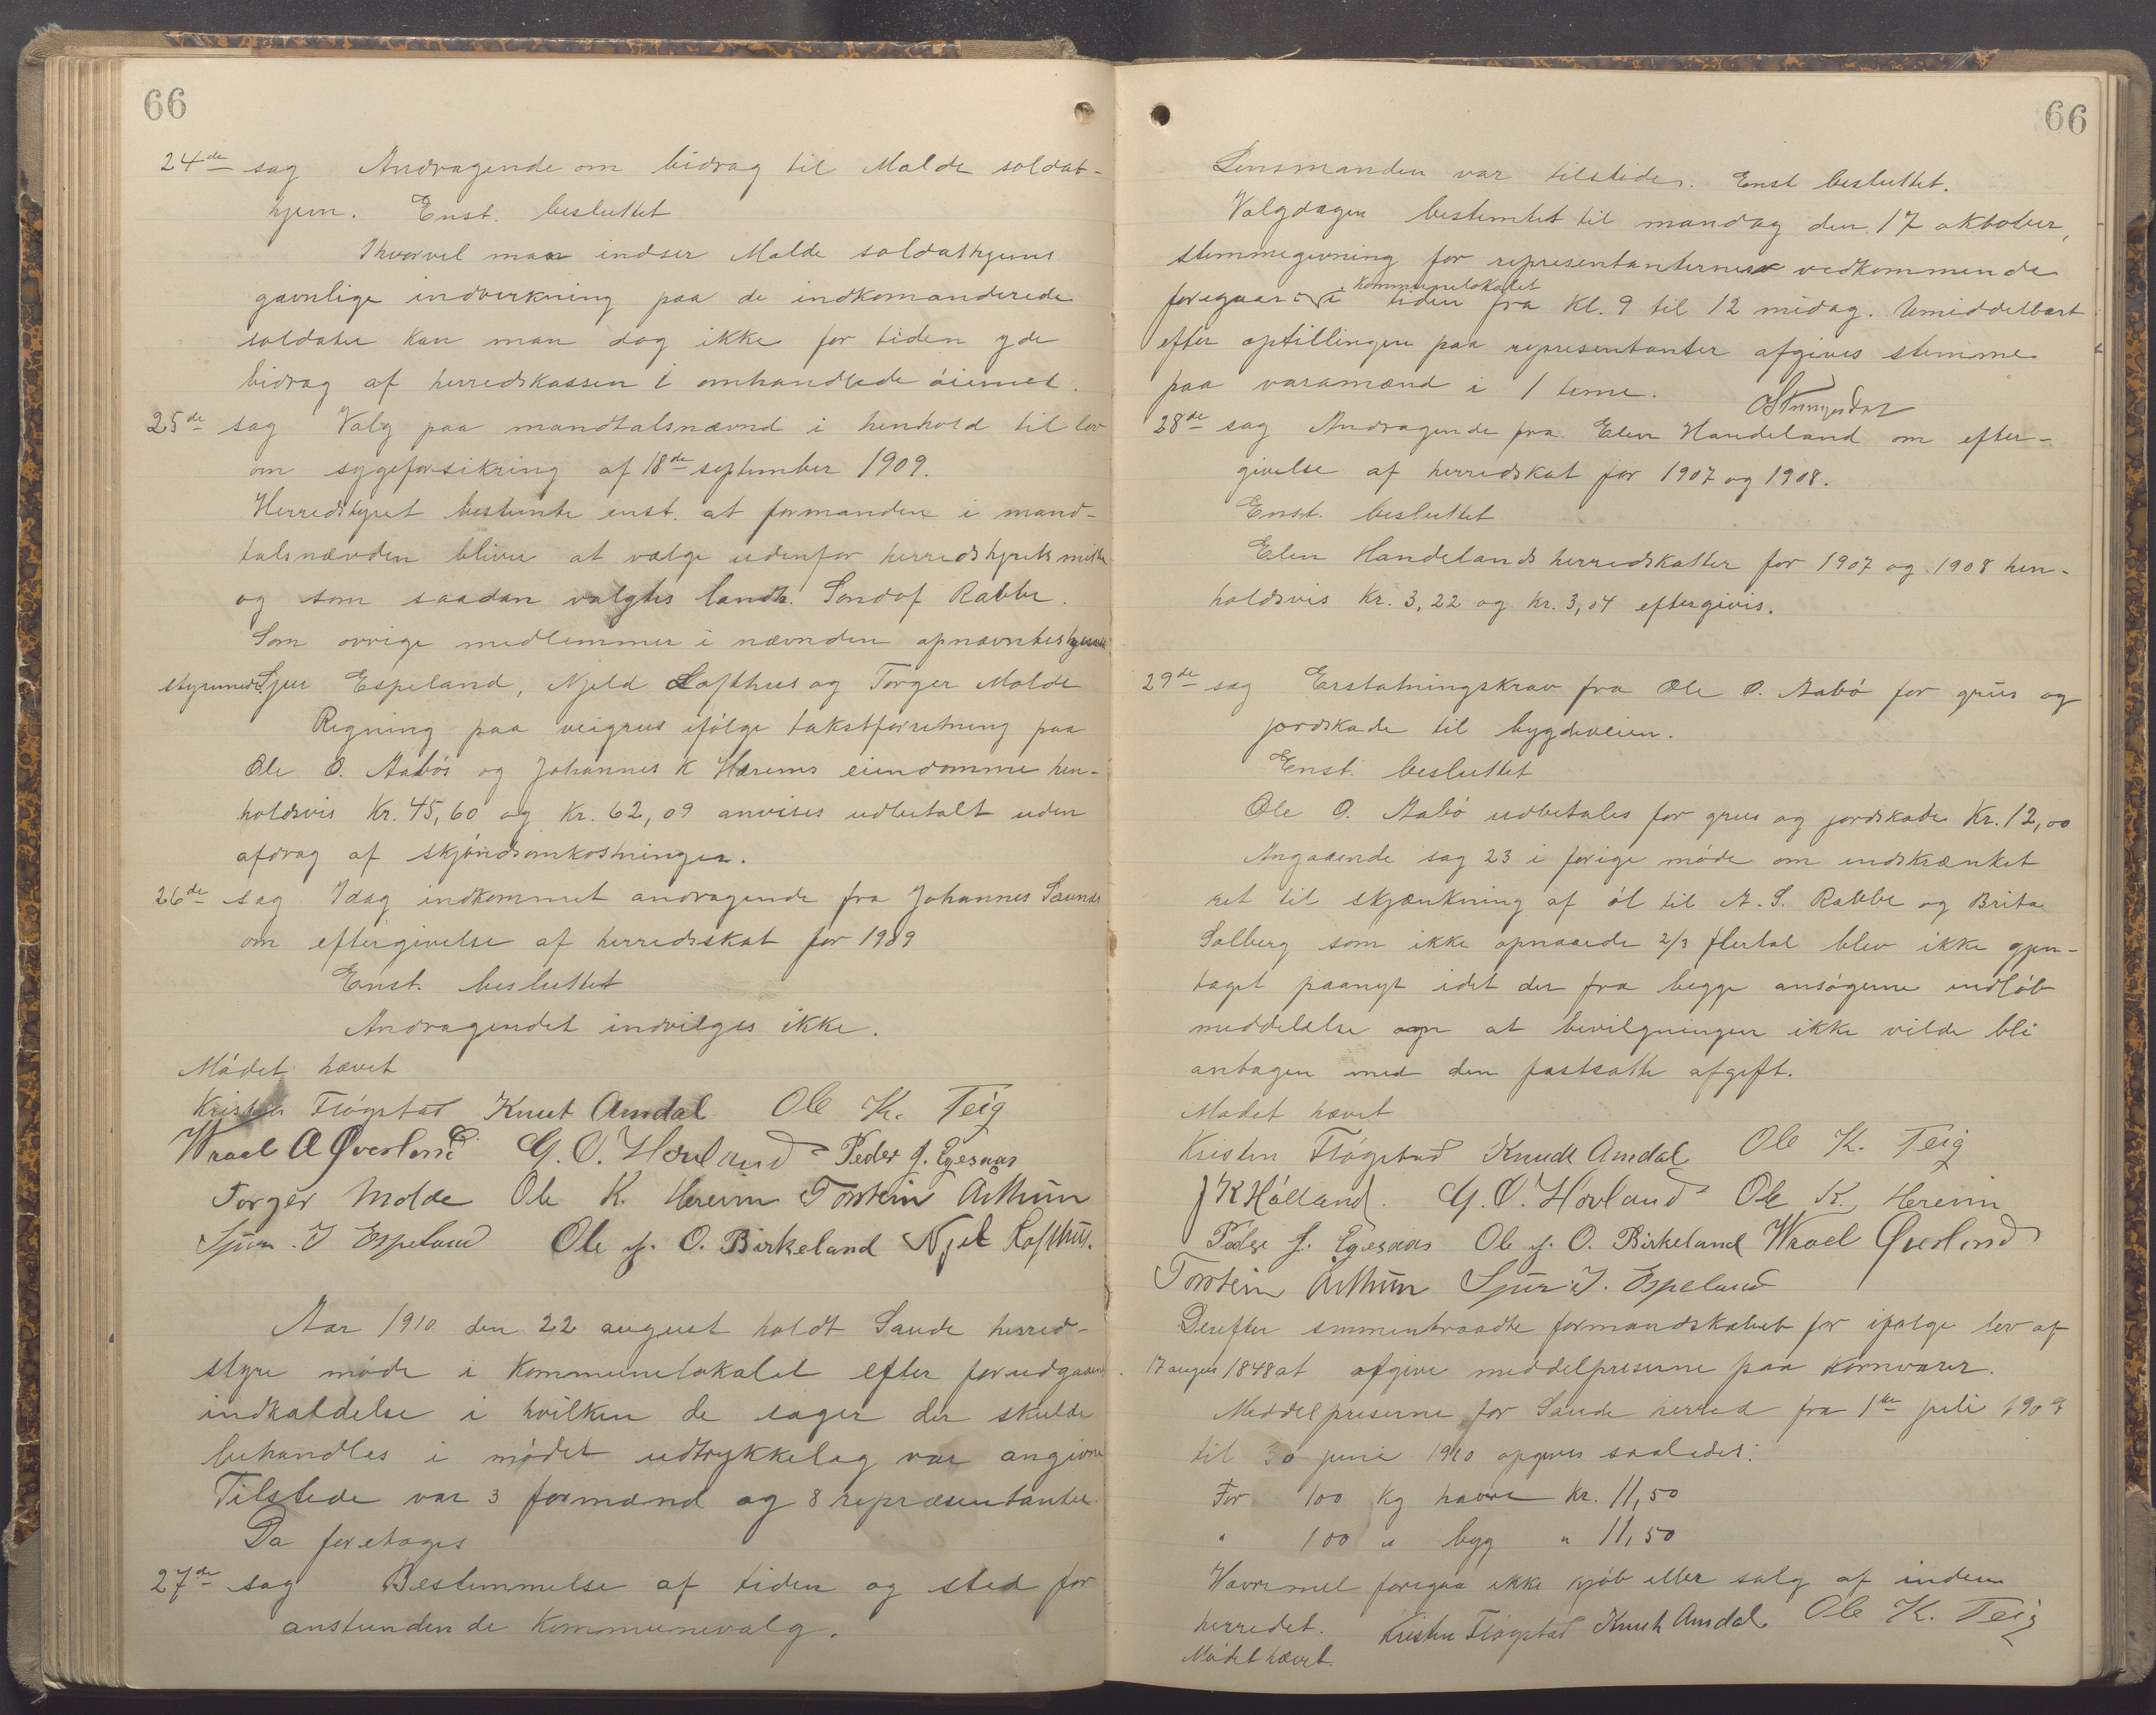 66
24de sag Andragende om bidrag til Molde soldat-
hjem. Enst. besluttet
Ihvorvel man indser Molde soldathjems
gavnlige indvirkning paa de indkomanderede
soldater kan man dog ikke for tiden yde
bidrag af herredskassen i omhandlede øiemed.
25de sag Valg paa mandtalsnævnd i henhold til lov
om sygeforsikring af 18de september 1909.
Herredstyret bestemte enst. at formanden i mand-
talsnævnden bliver at vælge udenfor herredstyrets midte
og som saadan valgtes landh. Sondof Rabbe.
Som øvrige medlemmer i nævnden opnævntes
styremed. Sjur Espeland, Njeld Lofthus og Torger Molde
Regning paa veigrus ifølge takstforretning paa
Ole O. Aabøs og Johannes K Hærems eiendomme hen-
holdsvis Kr. 45,60 og Kr. 62,09 anvises udbetalt uden
afdrag af skjøndsomkostninger.
26de sag Idag indkommet andragende fra Johannes
om eftergivelse af herredsskat for 1909
Enst. besluttet
Andragendet indvilges ikke.
Mødet hævet
Kristen Fløgstad Knut Amdal Ole K. Teig
Wrael A Øverland G. O. Hovland Peder J. Egesaas
Torger Molde Ole K. Hereim Torstein Arthun
Sjur. I Espeland Ole J. O. Birkeland Njel Lofthus.
Aar 1910 den 22 august holdt Saude herred-
styre møde i Kommunelokalet efter forudgaaende
indkaldelse i hvilken de sager der skulde
behandles i mødet udtrykkelag var angivne
Tilstede var 3 formænd og 8 repræsentanter
Da foretages
27de sag Bestemmelse af tiden og sted for
anstundende Kommunevalg.
66
Lensmanden var tilstede. Enst besluttet.
Valgdagen bestemtet til mandag den 17 oktober,
stemmegivning for representanternes vedkommende
foregaar i kommunelokalet i tiden fra kl. 9 til 12 midag. Umiddelbart
efter optillingen paa representanter afgives stemme
paa varamænd i 1 time.
28de sag Andragende fra Elen Handeland om efter-
givelse af herredskat for 1907 og 1908.
Enst. besluttet
Elen Handelands herredskatter for 1907 og 1908 hen-
holdsvis Kr. 3,22 og Kr. 3,04 eftergivis.
29de sag Erstatningskrav fra Ole O. Aabø for grus og
jordskade til bygdeveien.
Enst. besluttet
Ole O. Aabø udbetales for grus og jordskade Kr. 12,00
Angaaende sag 23 i forige møde om indskrænket
ret til skjænkning af øl til A. S. Rabbe og Brita
Solberg som ikke opnaaede 2/3 flertal blev ikke gjen-
taget paanyt idet der fra begge ansøgerne indløb
meddelelse om at bevilgningen ikke vilde bli
antagen med den fastsatte afgift.
Mødet hævet
Kristen Fløgstad Knudt Amdal Ole K. Teig
J K Hølland. G. O. Hovland Ole K. Hereim
Peder J. Egesaas Ole J. O. Birkeland Wrael Øverland
Torstein Arthun Sjur I. Espeland
Derefter sammentraadte formandskabet for ifølge lov af
17 august 1848 at afgive meddelpriserne paa kornvarer.
Meddelpriserne for Saude herred fra 1ste juli 1909
til 30 juni 1910 opgives saaledes:
For 100 Kg havre Kr. 11,50
" 100 " byg " 11,50
Havremel foregaa ikke kjøb eller salg af inden
herredet. Kristen Fløgstad Knut Amdal Ole K. Teig
Mødet hævet.